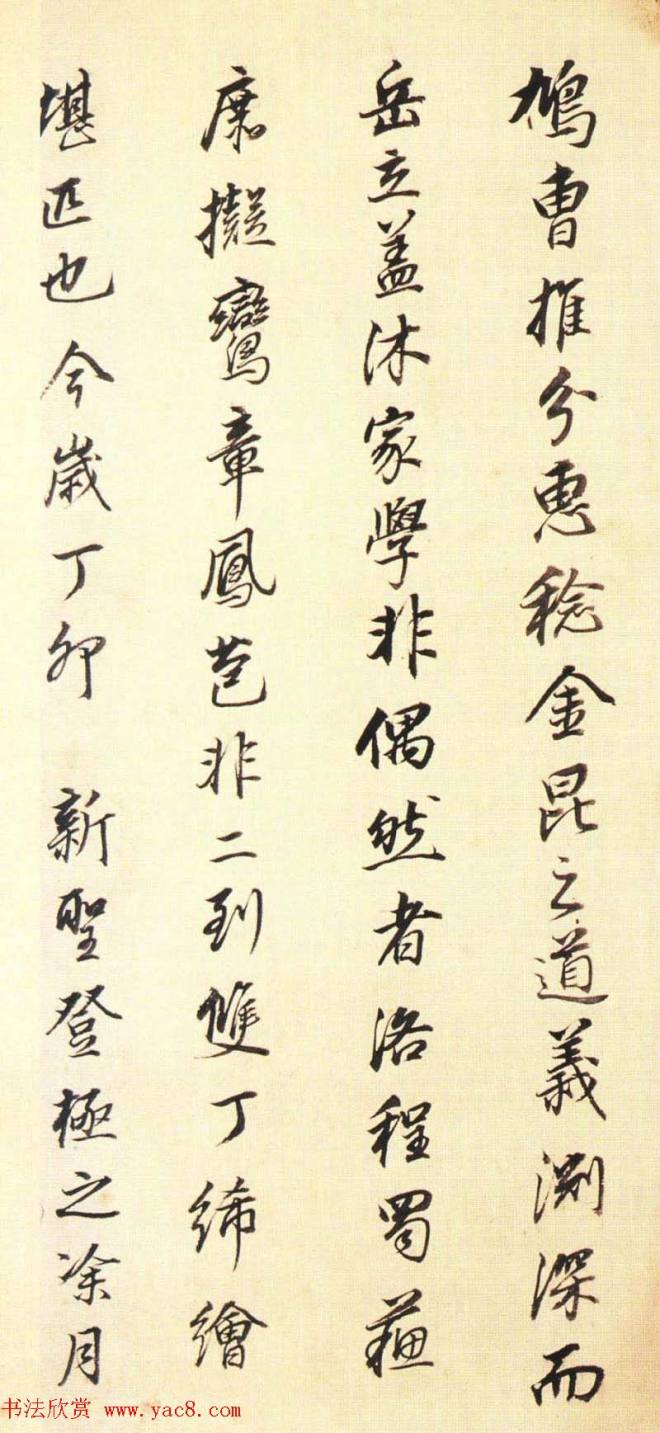 鳩曹推分惠稔金昆之道義淵深而
岳立盖沐家學非偶然者洛程蜀蘓
庶擬鸞章鳳苞非二到雙丁絺繪
堪匹也今歲丁卯 新聖登極之凃月
书法欣赏 www.yac8.com